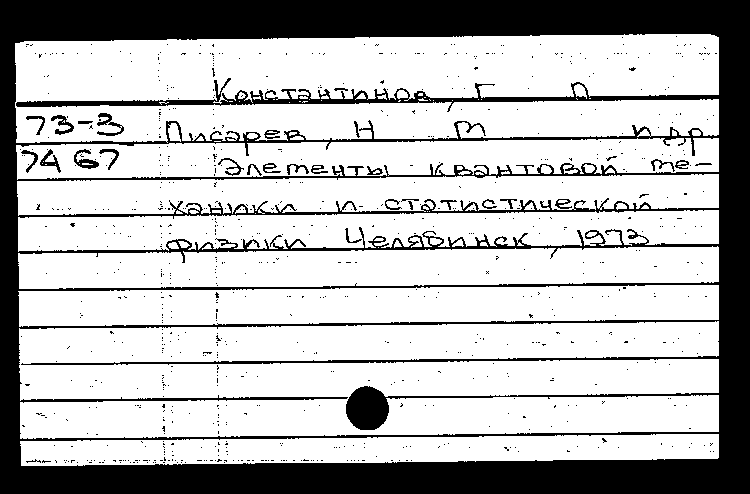 Константинов, Г П
73-3 Писарев, Н М и др
7467 Элементы квантовой ме-
ханики и статистической
физики Челябинск, 1973